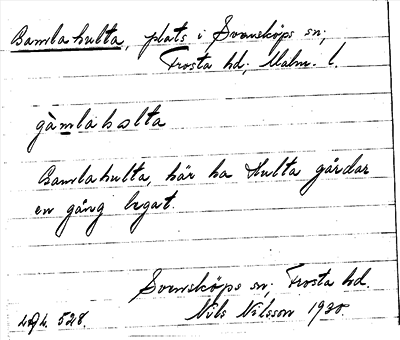 Gamlahulta, plats i Svensköps sn;
Frosta hd, Malm. l.
gàmlahulta
Gamlahulta, här ha Hulta gårdar
en gång legat.
Svensköps sn; Frosta hd.
Nils Nilsson 1930.
LAL. 528.